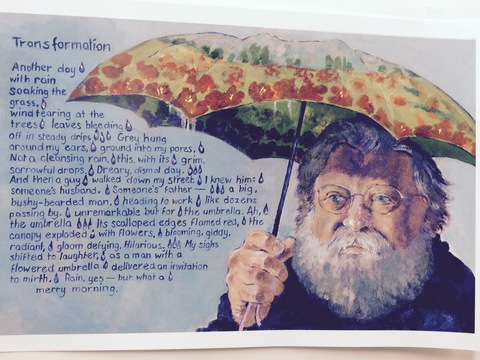 Transformation
Another day
with rain
Soaking the
grass,
wind tearing at the
trees leaves bleeding
off in steady drips Grey hung
around my ears, ground into my pores,
Not a cleansing rain, this, with its grim,
sorrowful drops. Dreary, dismal day.
And then a guy walked down my street. I knew him:
someone's husband. Someone's father — a big,
bushy-bearded man, heading to work like dozens
passing by. unremarkable but for the umbrella. Ah,
the umbrella Its scalloped edges flamed red, the
canopy exploded with flowers, blooming, giddy,
radiant, gloom defying. Hilarious. My sighs
shifted to laughter, as a man with a
flowered umbrella delivered an invitation
to mirth. Rain, yes — but what a
merry morning.